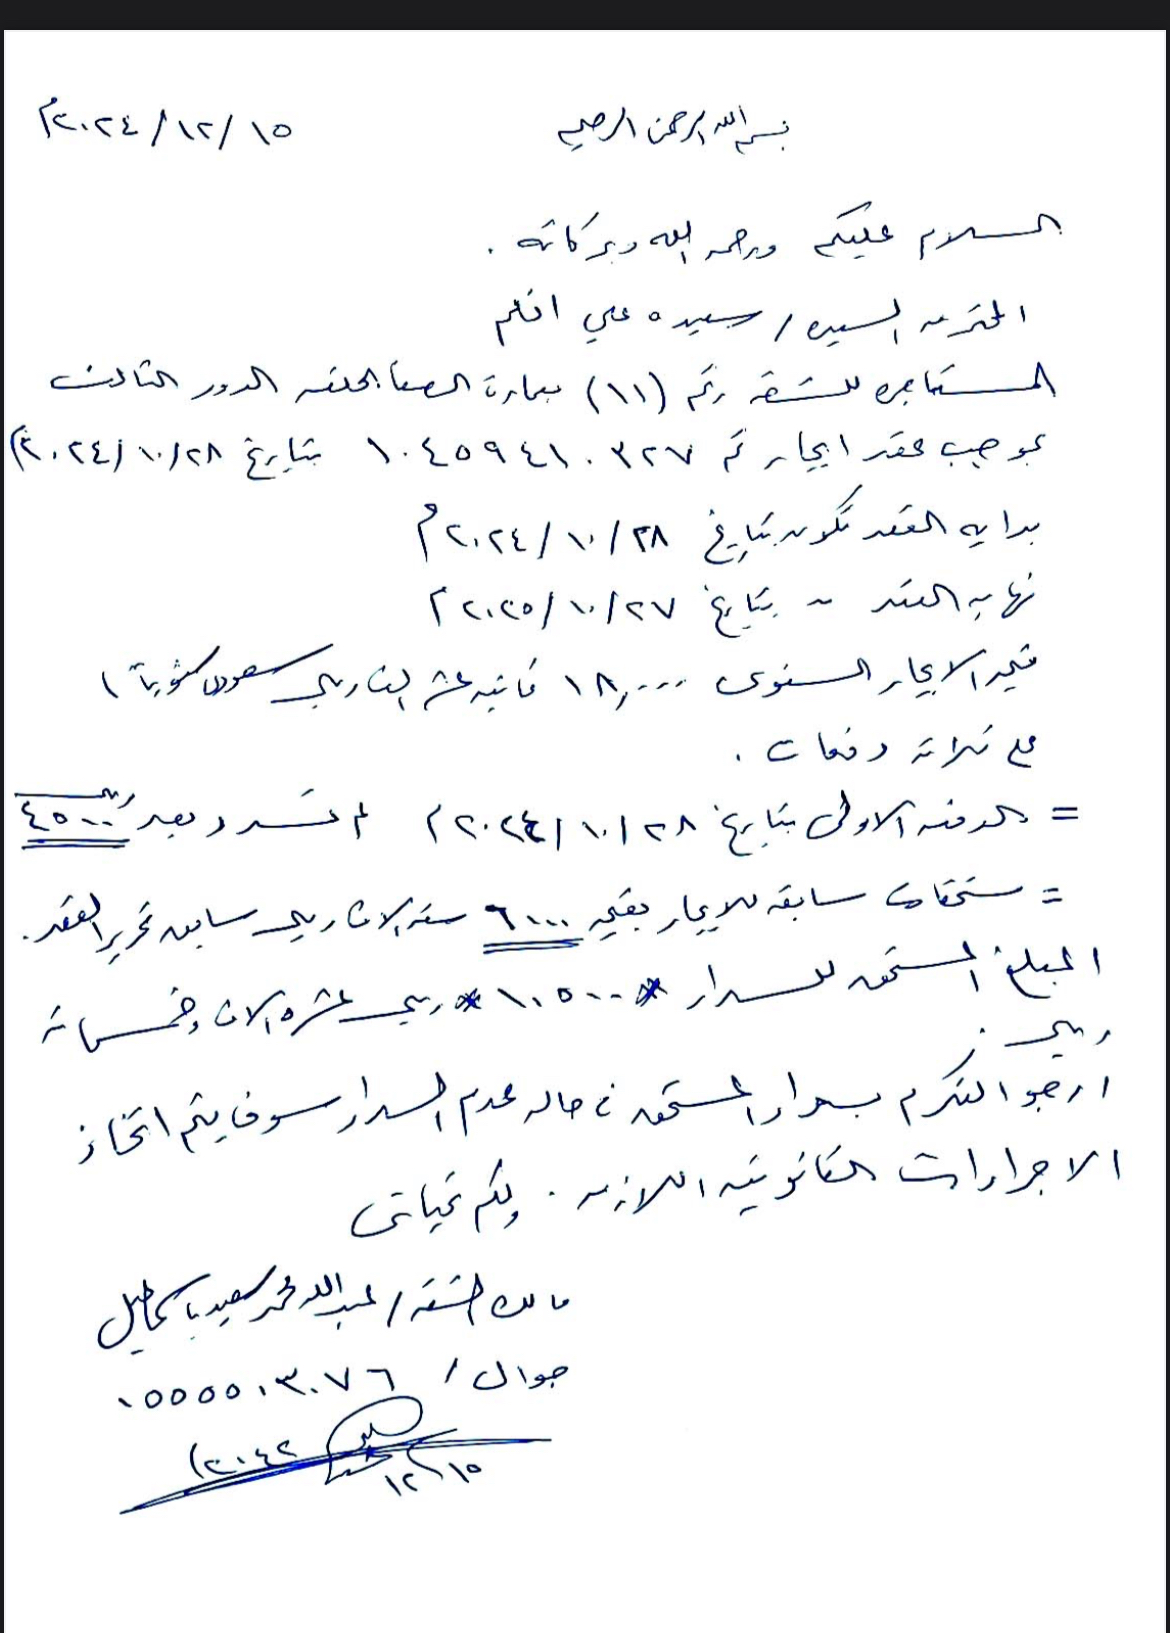 بسم الله الرحمن الرحيم ١٥ / ١٢ / ٢٠٢٤م
السلام عليكم ورحمه الله وبركاته .
المحترمه السيده / سعيده علي
المستأجره للشقه رقم (١١) بعمارة الصفا الدور الثالث
بموجب عقد ايجار رقم ١٠٤٥٩٤١٠٣٢٧ بتاريخ ٢٠٢٤/١٠/٢٨م
بدايه العقد تكون بتاريخ ٢٨ / ١٠ / ٢٠٢٤م
نهايه العقد ~ بتاريخ ٢٧ / ١٠ / ٢٠٢٥م
قيمه الايجار السنوى ١٨,٠٠٠ ثمانيه عشر الف ريال سعودى
على ثلاثة دفعات .
= الدفعه الاولى بتاريخ ٢٨ / ١٠ / ٢٠٢٤م لم تسدد وبعد ٤٥٠٠ ريال
= مستحقات سابقه للايجار بقيمه ٦٠٠٠ سته الاف ريال سابق تحرير العقد .
المبلغ المستحق للسداد * ١٠,٥٠٠ * ريال عشره الاف وخمسمائة
ريال .
ارجو التكرم بسداد المستحق في حاله عدم السداد سوف يتم اتخاذ
الاجراءات القانونيه اللازمه . ولكم تحياتى
مالك الشقه / عبدالله محمد سعيد
جوال / ٠٥٥٥٥٠٣٠٧٦
١٢/١٥